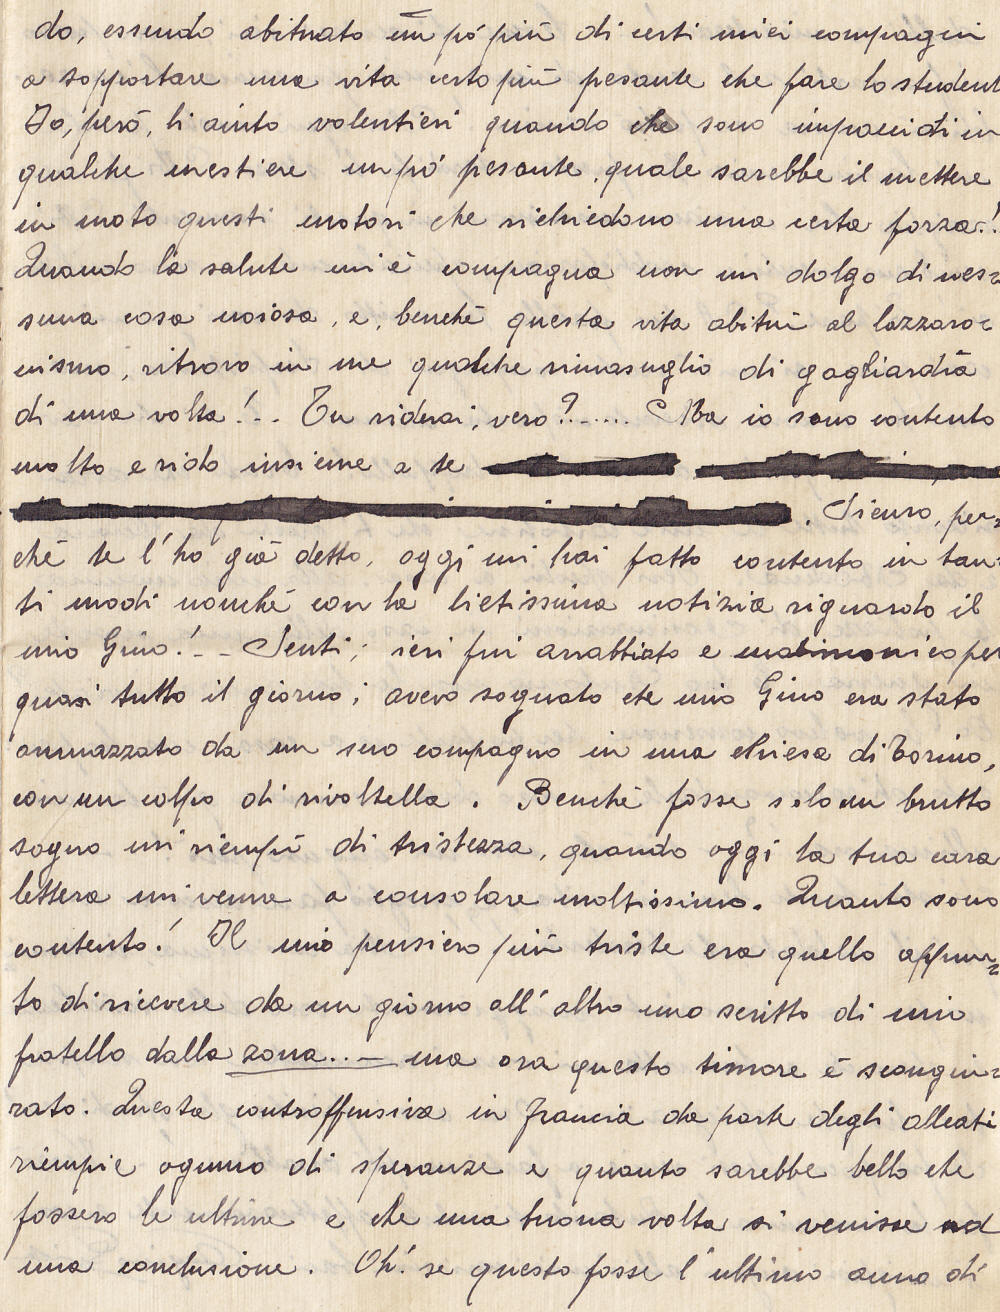 do, essendo abituato un pó più di certi miei compagni
a sopportare una vita certo più pesante che fare lo student
Io, però, li aiuto volentieri quando che sono impacciati in
qualche mestiere un pó pesante, quale sarebbe il mettere
in moto questi motori che richiedono una certa forza.!
Quando la salute mi è compagna non mi dolgo di nes=
suna cosa noiosa, e, benché questa vita abitui al lazzaro=
nismo, ritrovo in me qualche rimasuglio di gagliardia
di una volta!.. Tu riderai, vero?...... Ma io sono contento
molto e rido insieme a te
. Sicuro, per=
ché te l'ho già detto, oggi mi hai fatto contento in tan=
ti modi nonché con la lietissima notizia riguardo il
mio Gino!-- Senti; ieri fui arrabbiato e malinconico per
quasi tutto il giorno; avevo sognato che mio Gino era stato
ammazzato da un suo compagno in una chiesa di Torino,
con un colpo di rivoltella. Benché fosse solo un brutto
sogno mi riempì di tristezza, quando oggi la tua cara
lettera mi venne a consolare moltissimo. Quanto sono
contento! Il mio pensiero più triste era quello appun=
to di ricevere da un giorno all'altro uno scritto di mio
fratello dalla zona..- ma ora questo timore è scongiu=
rato. Questa controffensiva in Francia da parte degli alleati
riempie ognuno di speranze e quanto sarebbe bello che
fossero le ultime e che una buona volta si venisse ad
una conclusione. Oh! se questo fosse l'ultimo anno di